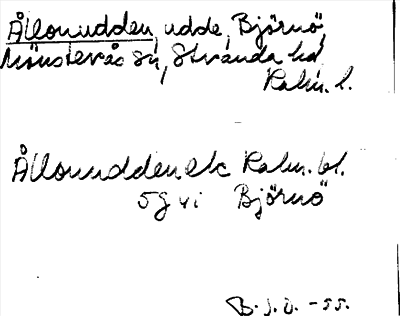 Ållonudden, udde, Björnö,
Mönsterås sn, Stranda hd
Kalm. l.
Ållonudden ek Kalm. bl.
5g vi Björnö
B.J.O. -55.